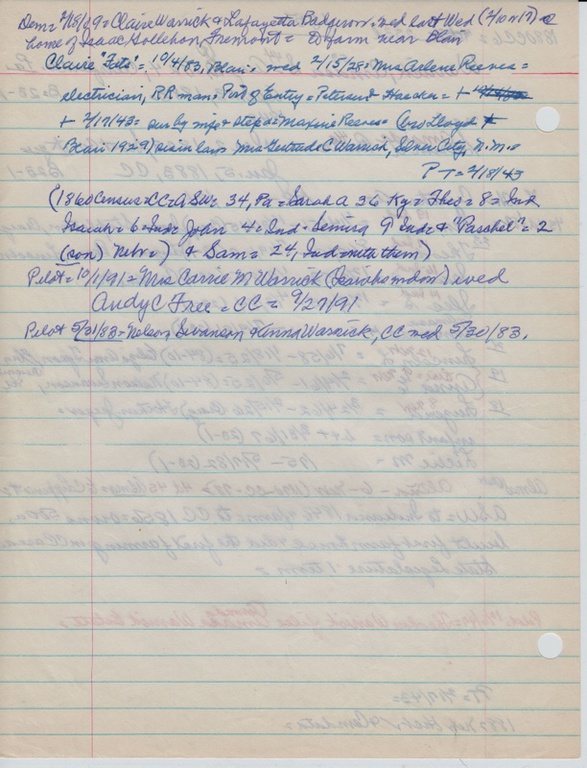 Dem= 2/18/09= Claire Warrick & Lafayetta Badgerow. wed last Wed (2/10 or 17) @
home of Isaac Gollehon, Fremont= to farm near Blair
Claire "Fats"= 10/4/83, Blair= wed 2/15/28= Mrs Arlene Reeves=
electrician, RR man= Port of Entry= +
+ 2/17/43= sur by wife & step d= Maxine Reeves (c/o Lloyd
Blair 1929) sis in law Mrs Gertrude C Warrick, Silver City, N.M.=
PT= 2/18/43
(1860 Census CC= A SW= 34, Pa= Sarah A 36 Ky= Theo= 8= Ind
Isaiah= 6 Ind= John 4= Ind= 9 Ind= & "Paschel"= 2
(son) Nebr=) & Sam= 24, Ind with them)
Pilot= 10/1/91= Mrs Carrie M Warrick wed
Andy C Free= CC= 9/27/91
Pilot 5/31/83= Nelson Swanson & Anna Warrick, CC wed 5/30/83.